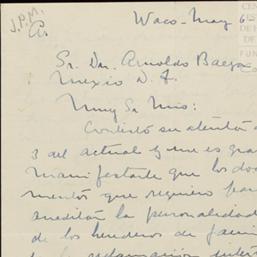 J.P.M.
Waco - May 6
Sr. Dn. Arnoldo Baeza
Mexico D. F.
Muy Sr Mio:
Contesto su atenta
3 del actual y me es gra
manifestarle que los docu
mentos que requiero para
acreditar la personalidad
de los herederos de
la reclamación